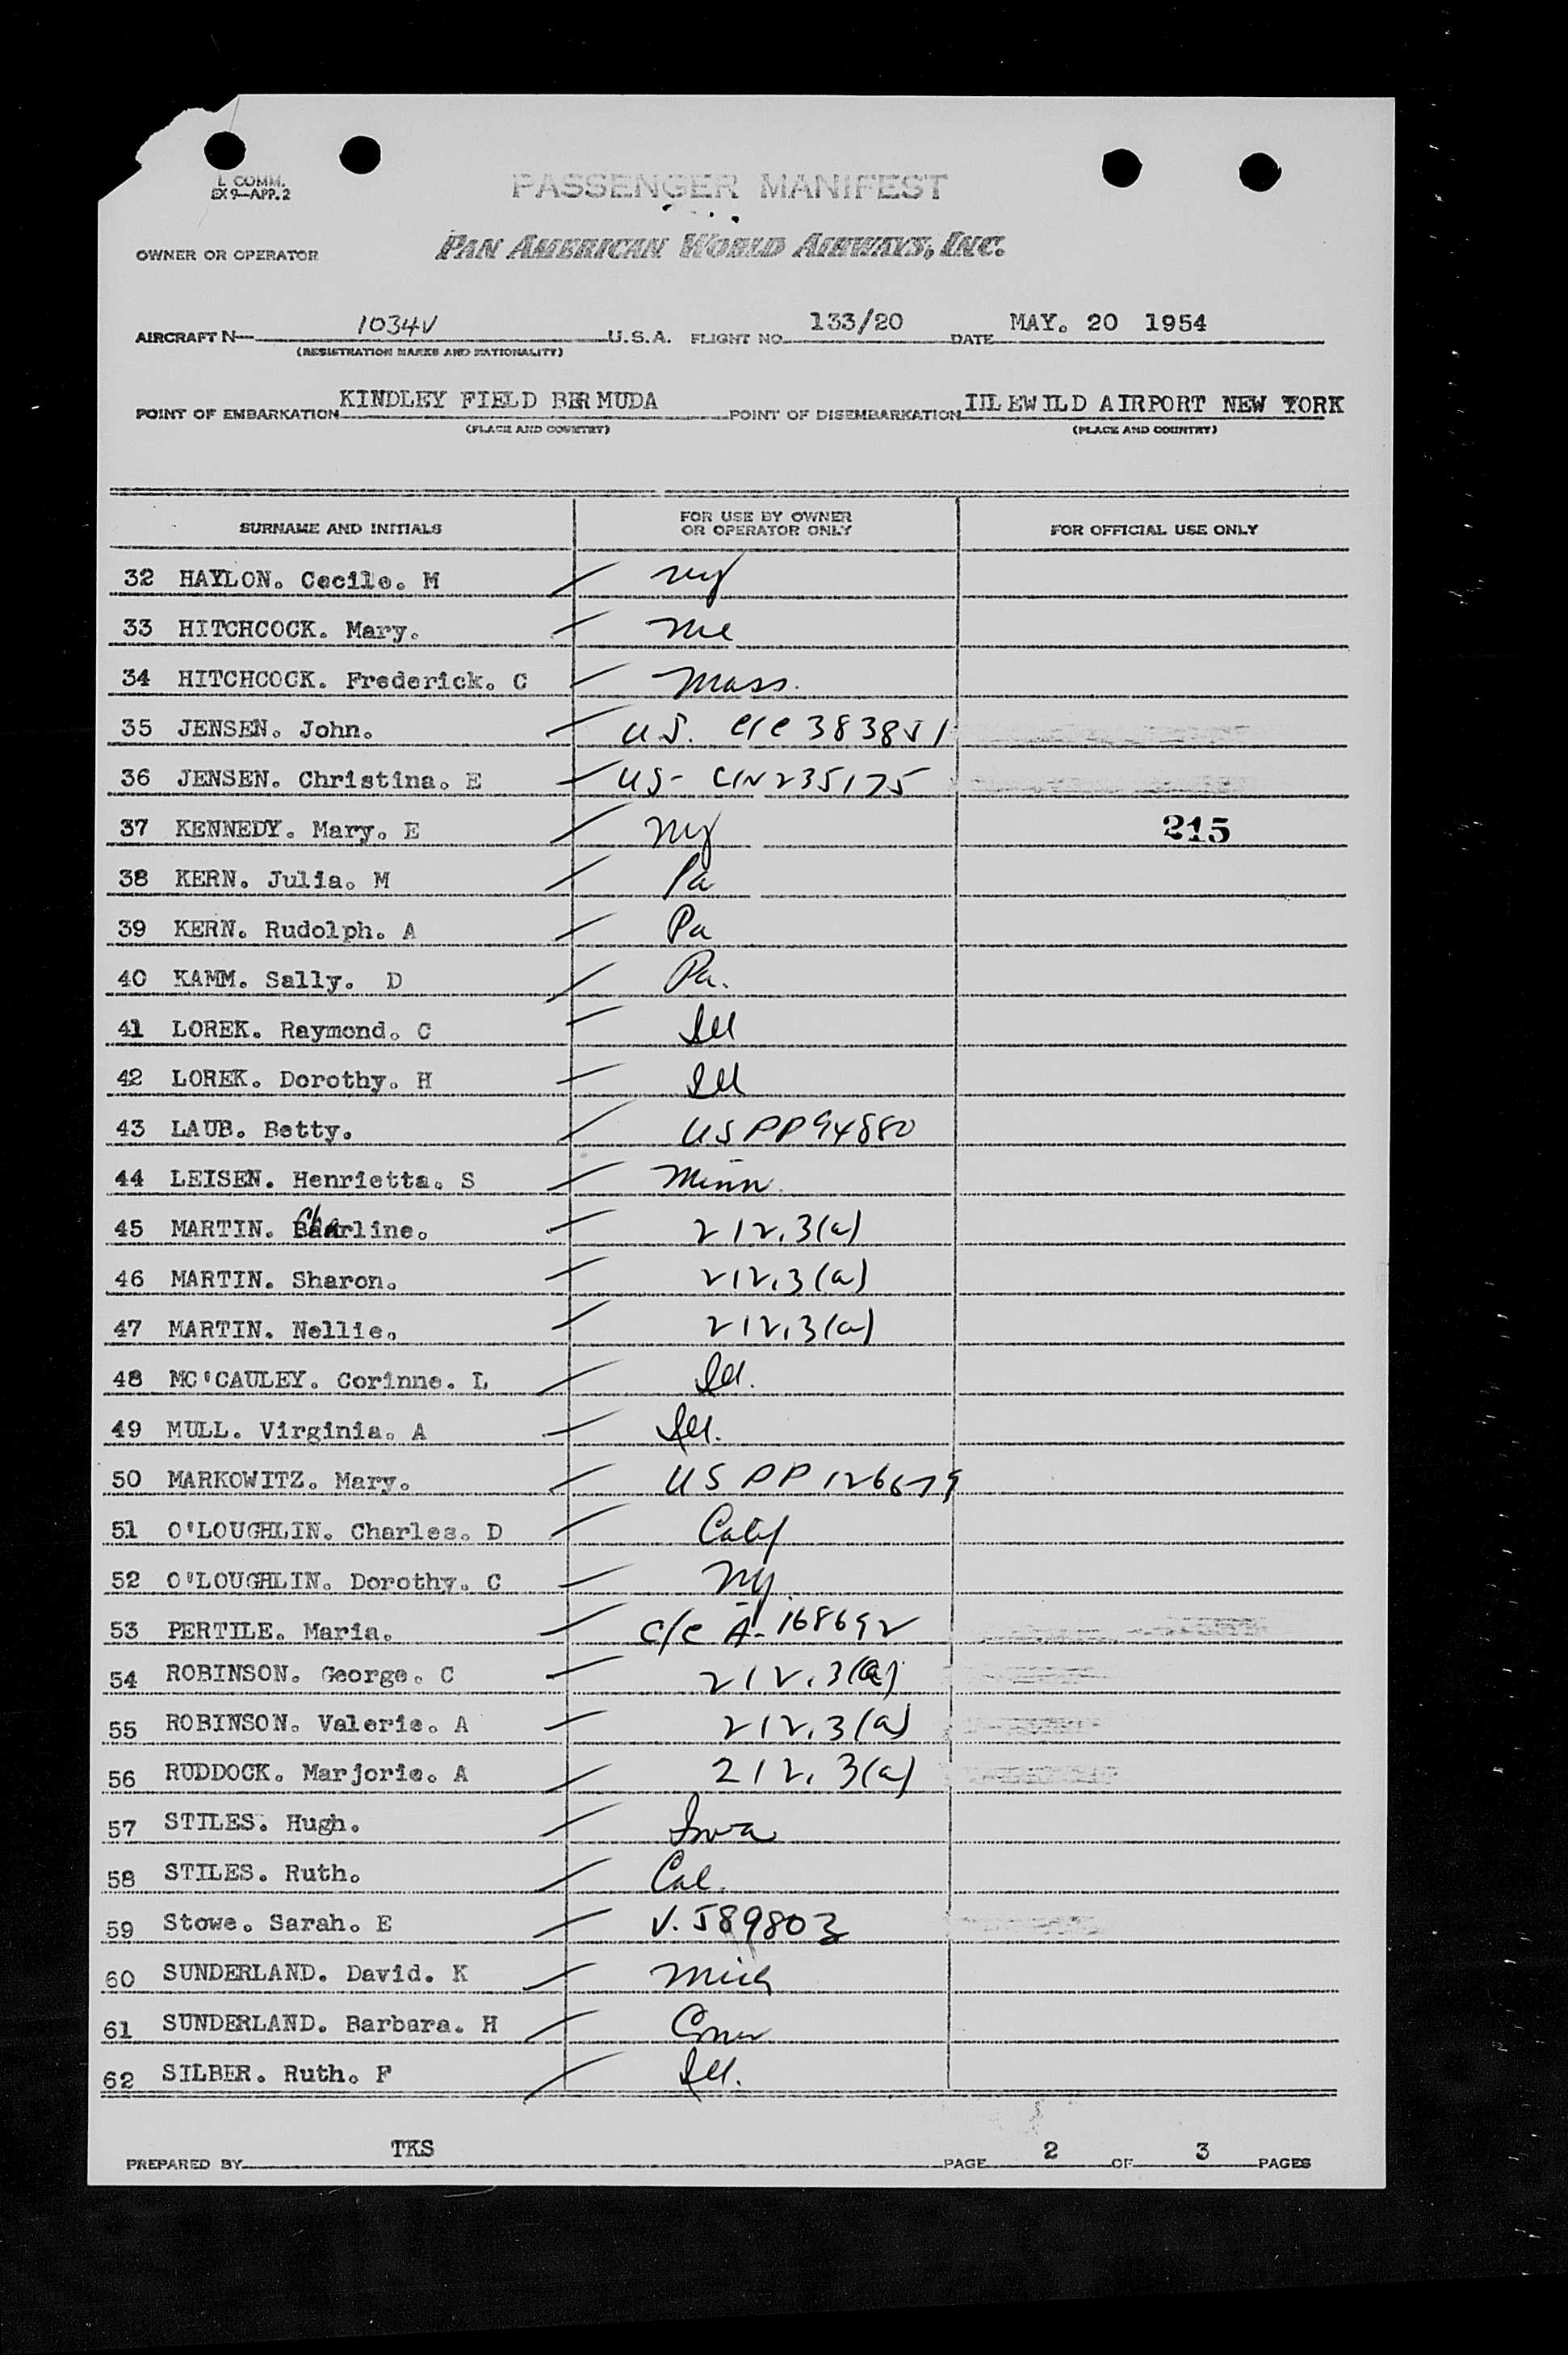 L COMM.
EX 9—APP. 2
PASSENGER MANIFEST
OWNER OR OPERATOR PAN AMERICAN WORLD AIRWAYS, INC.
AIRCRAFT N— 1034V U.S.A. FLIGHT NO. 133/20 DATE MAY. 20 1954
(REGISTRATION MARKS AND NATIONALITY)
POINT OF EMBARKATION KINDLEY FIELD BERMUDA POINT OF DISEMBARKATION IDLEWILD AIRPORT NEW YORK
(PLACE AND COUNTRY) (PLACE AND COUNTRY)
SURNAME AND INITIALS FOR USE BY OWNER OR OPERATOR ONLY FOR OFFICIAL USE ONLY
32 HAYLON. Cecile. M Ny
33 HITCHCOCK. Mary. Me
34 HITCHCOCK. Frederick. C Mass.
35 JENSEN. John. U.S. c/c 383851
36 JENSEN. Christina. E US- C/N 235175
37 KENNEDY. Mary. E Ny 215
38 KERN. Julia. M Pa
39 KERN. Rudolph. A Pa
40 KAMM. Sally. D Pa.
41 LOREK. Raymond. C Ill
42 LOREK. Dorothy. H Ill
43 LAUB. Betty. US PP 94880
44 LEISEN. Henrietta. S Minn.
45 MARTIN. Charline. 212.3(a)
46 MARTIN. Sharon. 212.3(a)
47 MARTIN. Nellie. 212.3(a)
48 MC'CAULEY. Corinne. L Ill.
49 MULL. Virginia. A Ill.
50 MARKOWITZ. Mary. US PP 126679
51 O'LOUGHLIN. Charles. D Calif
52 O'LOUGHLIN. Dorothy. C Ny.
53 PERTILE. Maria. c/c A-168692
54 ROBINSON. George. C 212.3(a)
55 ROBINSON. Valerie. A 212.3(a)
56 RUDDOCK. Marjorie. A 212.3(a)
57 STILES. Hugh. Iowa
58 STILES. Ruth. Cal.
59 Stowe. Sarah. E V. 589803
60 SUNDERLAND. David. K Mich
61 SUNDERLAND. Barbara. H Conn
62 SILBER. Ruth. F Ill.
PREPARED BY TKS PAGE 2 OF 3 PAGES